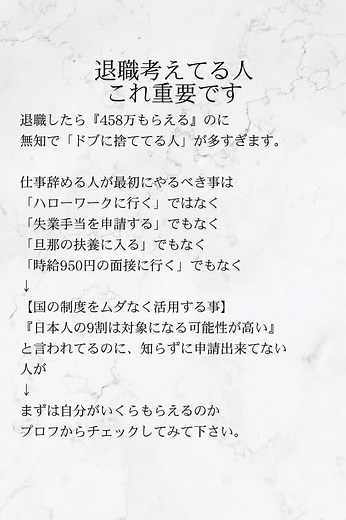 退職考えてる人
これ重要です
退職したら『458万もらえる』のに
無知で「ドブに捨ててる人」が多すぎます。
仕事辞める人が最初にやるべき事は
「ハローワークに行く」ではなく
「失業手当を申請する」でもなく
「旦那の扶養に入る」でもなく
「時給950円の面接に行く」でもなく
↓
【国の制度をムダなく活用する事】
『日本人の9割は対象になる可能性が高い』
と言われてるのに、知らずに申請出来てない
人が
↓
まずは自分がいくらもらえるのか
プロフからチェックしてみて下さい。